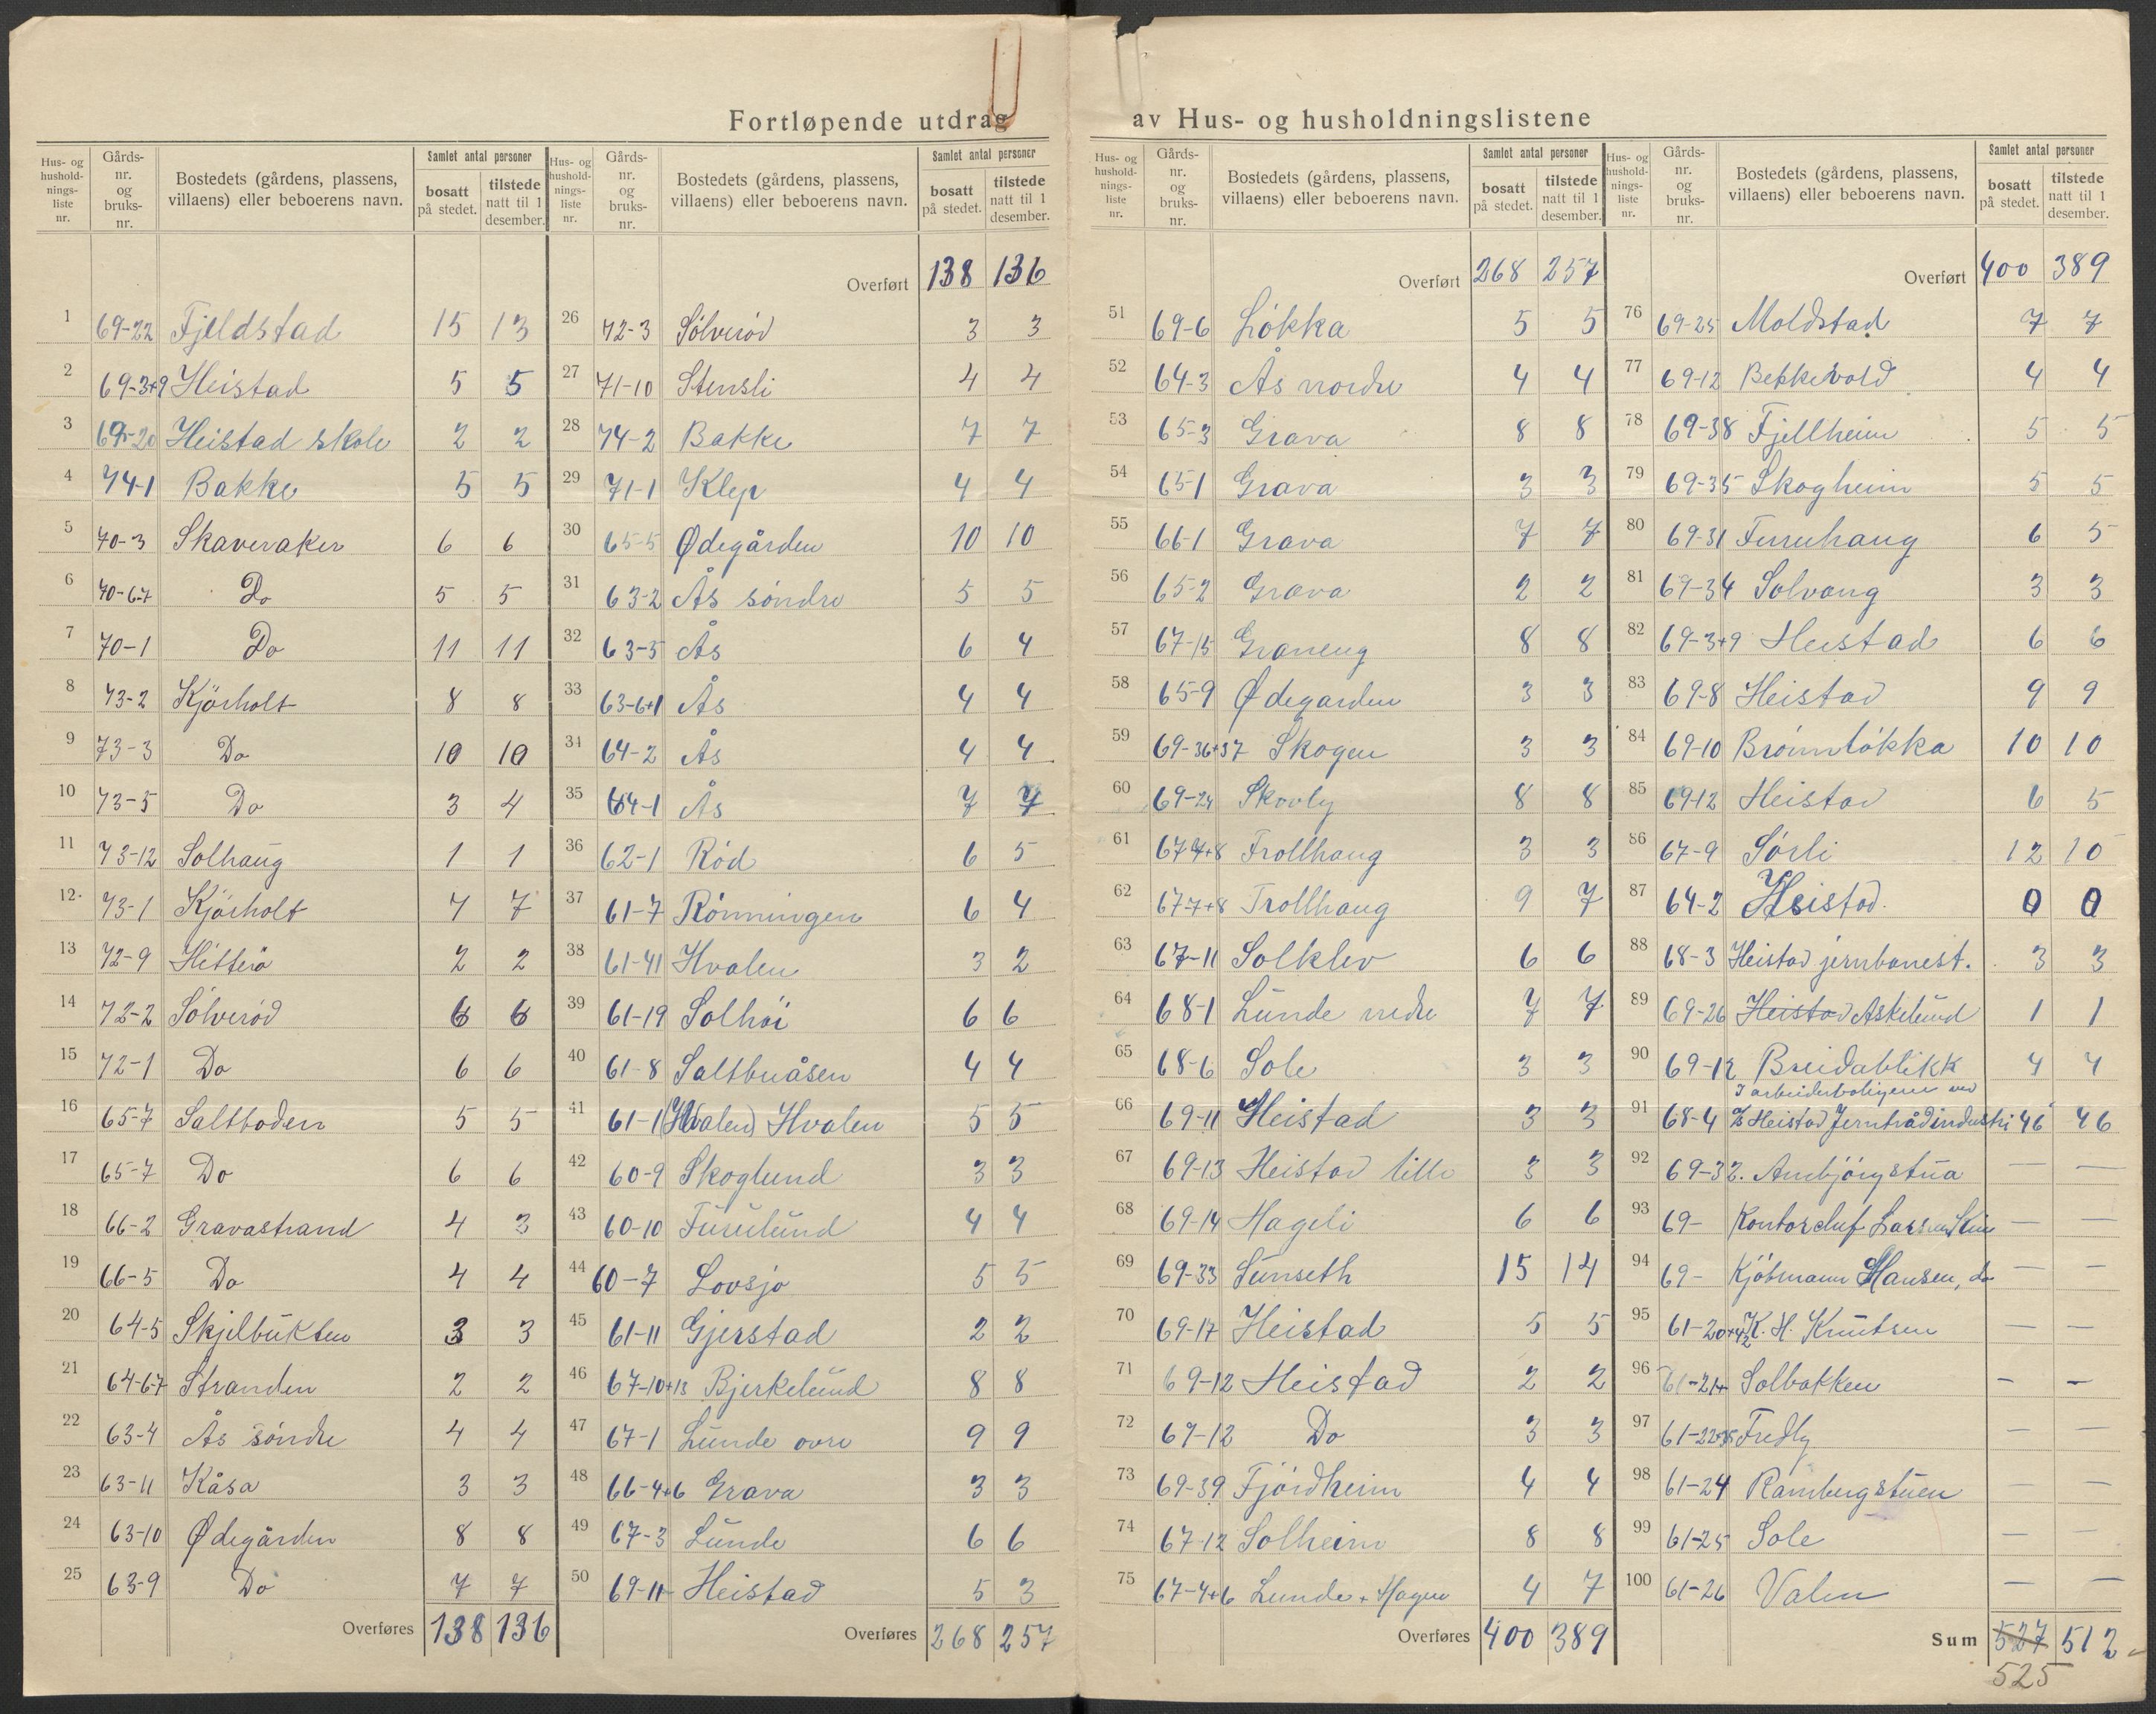 Fortløpende utdrag av Hus- og husholdningslistene
Hus- og husholdnings-liste nr. | Gårds-nr. og bruks-nr. | Bostedets (gårdens, plassens, villaens) eller beboerens navn. | Samlet antal personer | bosatt på stedet. | tilstede natt til 1 desember.
1 69-22 Fjeldstad 15 13
2 69-3+9 Heistad 5 5
3 69-20 Heistad skole 2 2
4 74-1 Bakke 5 5
5 70-3 Skaveraker 6 6
6 70-6-7 Do 5 5
7 70-1 Do 11 11
8 73-2 Kjörholt 8 8
9 73-3 Do 10 10
10 73-5 Do 3 4
11 73-12 Solhaug 1 1
12 73-1 Kjörholt 7 7
13 72-9 Hitterö 2 2
14 72-2 Sölveröd 6 6
15 72-1 Do 6 6
16 65-7 Saltboden 5 5
17 65-7 Do 6 6
18 66-2 Gravastrand 4 3
19 66-5 Do 4 4
20 64-5 Skjelbukten 3 3
21 64-6-7 Stranden 2 2
22 63-4 Ås söndre 4 4
23 63-11 Kåsa 3 3
24 63-10 Ødegården 8 8
25 63-9 Do 7 7
Overføres 138 136
Hus- og husholdnings-liste nr. | Gårds-nr. og bruks-nr. | Bostedets (gårdens, plassens, villaens) eller beboerens navn. | Samlet antal personer | bosatt på stedet. | tilstede natt til 1 desember.
Overført 138 136
26 72-3 Sölveröd 3 3
27 71-10 Stensli 4 4
28 74-2 Bakke 7 7
29 71-1 Klep 4 4
30 65-5 Ødegården 10 10
31 63-2 Ås söndre 5 5
32 63-5 Ås 6 4
33 63-6+1 Ås 4 4
34 64-2 Ås 4 4
35 64-1 Ås 7 7
36 62-1 Röd 6 5
37 61-7 Rönningen 6 4
38 61-41 Hvalen 3 2
39 61-19 Solhöi 6 6
40 61-8 Saltbuåsen 4 4
41 61-1 (Hvalen) Hvalen 5 5
42 60-9 Skoglund 3 3
43 60-10 Furulund 4 4
44 60-7 Lovsjo 5 5
45 61-11 Gjerstad 2 2
46 67-10+13 Bjerkelund 8 8
47 67-1 Lunde övre 9 9
48 66-4+6 Grava 3 3
49 67-3 Lunde 6 6
50 69-11 Heistad 5 3
Overføres 268 257
Hus- og husholdnings-liste nr. | Gårds-nr. og bruks-nr. | Bostedets (gårdens, plassens, villaens) eller beboerens navn. | Samlet antal personer | bosatt på stedet. | tilstede natt til 1 desember.
Overført 268 257
51 69-6 Lökka 5 5
52 64-3 Ås nordre 4 4
53 65-3 Grava 8 8
54 65-1 Grava 3 3
55 66-1 Grava 7 7
56 65-2 Grava 2 2
57 67-15 Graneng 8 8
58 65-9 Ødegarden 3 3
59 69-36+37 Skogen 3 3
60 69-24 Skovly 8 8
61 67-7+8 Trollhaug 3 3
62 67-7+8 Trollhaug 9 7
63 67-11 Solklev 6 6
64 68-1 Lunde nedre 7 7
65 68-6 Sole 3 3
66 69-11 Heistad 3 3
67 69-13 Heistad lille 3 3
68 69-14 Hageli 6 6
69 69-33 Sunseth 15 14
70 69-17 Heistad 5 5
71 69-12 Heistad 2 2
72 69-12 Do 3 3
73 69-39 Fjördheim 4 4
74 67-12 Solheim 8 8
75 67-4+6 Lunde + Hagen 4 7
Overføres 400 389
Hus- og husholdnings-liste nr. | Gårds-nr. og bruks-nr. | Bostedets (gårdens, plassens, villaens) eller beboerens navn. | Samlet antal personer | bosatt på stedet. | tilstede natt til 1 desember.
Overført 400 389
76 69-25 Moldstad 7 7
77 69-12 Bekkevold 4 4
78 69-38 Fjellheim 5 5
79 69-35 Skogheim 5 5
80 69-31 Furuhaug 6 5
81 69-34 Solvang 3 3
82 69-3+9 Heistad 6 6
83 69-8 Heistad 9 9
84 69-10 Brönnlökka 10 10
85 69-12 Heistad 6 5
86 67-9 Sörli 12 10
87 64-2 Heistad. 0 0
88 68-3 Heistad jernbanest. 3 3
89 69-26 Heistad Askelund 1 1
90 69-12 Breidablikk 4 4
I arbeiderboligene ved
91 68-4 A/S Heistad Jerntrådindustri 46 46
92 69-32. Anbjörgstua — —
93 69- Kontorchef Larsen, — —
94 69- Kjöbmann Hansen, do — —
95 61-20+42 K. H. Knutsen — —
96 61-21+ Solbakken — —
97 61-22+35 Fredly — —
98 61-24 Rambergstuen — —
99 61-25 Sole — —
100 61-26 Valen — —
Sum 527 512
525